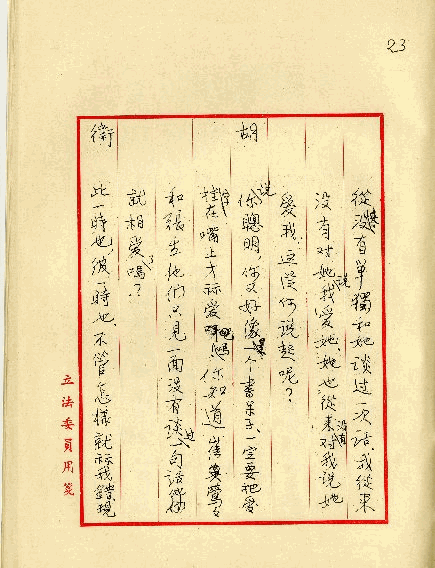 23
從沒有單獨和她談過一次話，我從來
沒有对她说我愛她，她也從來沒有对我説她
愛我，这從何說起呢？
胡 说你聰明，你又好像是一个書呆子，一定要把愛
字挂在嘴上才称愛嗎？你知道崔鶯鶯
和張生他們只見一面沒有談过一句話
就相愛了嗎？
衛 此一時也，彼一時也，不管怎樣就称我
立法委員用箋